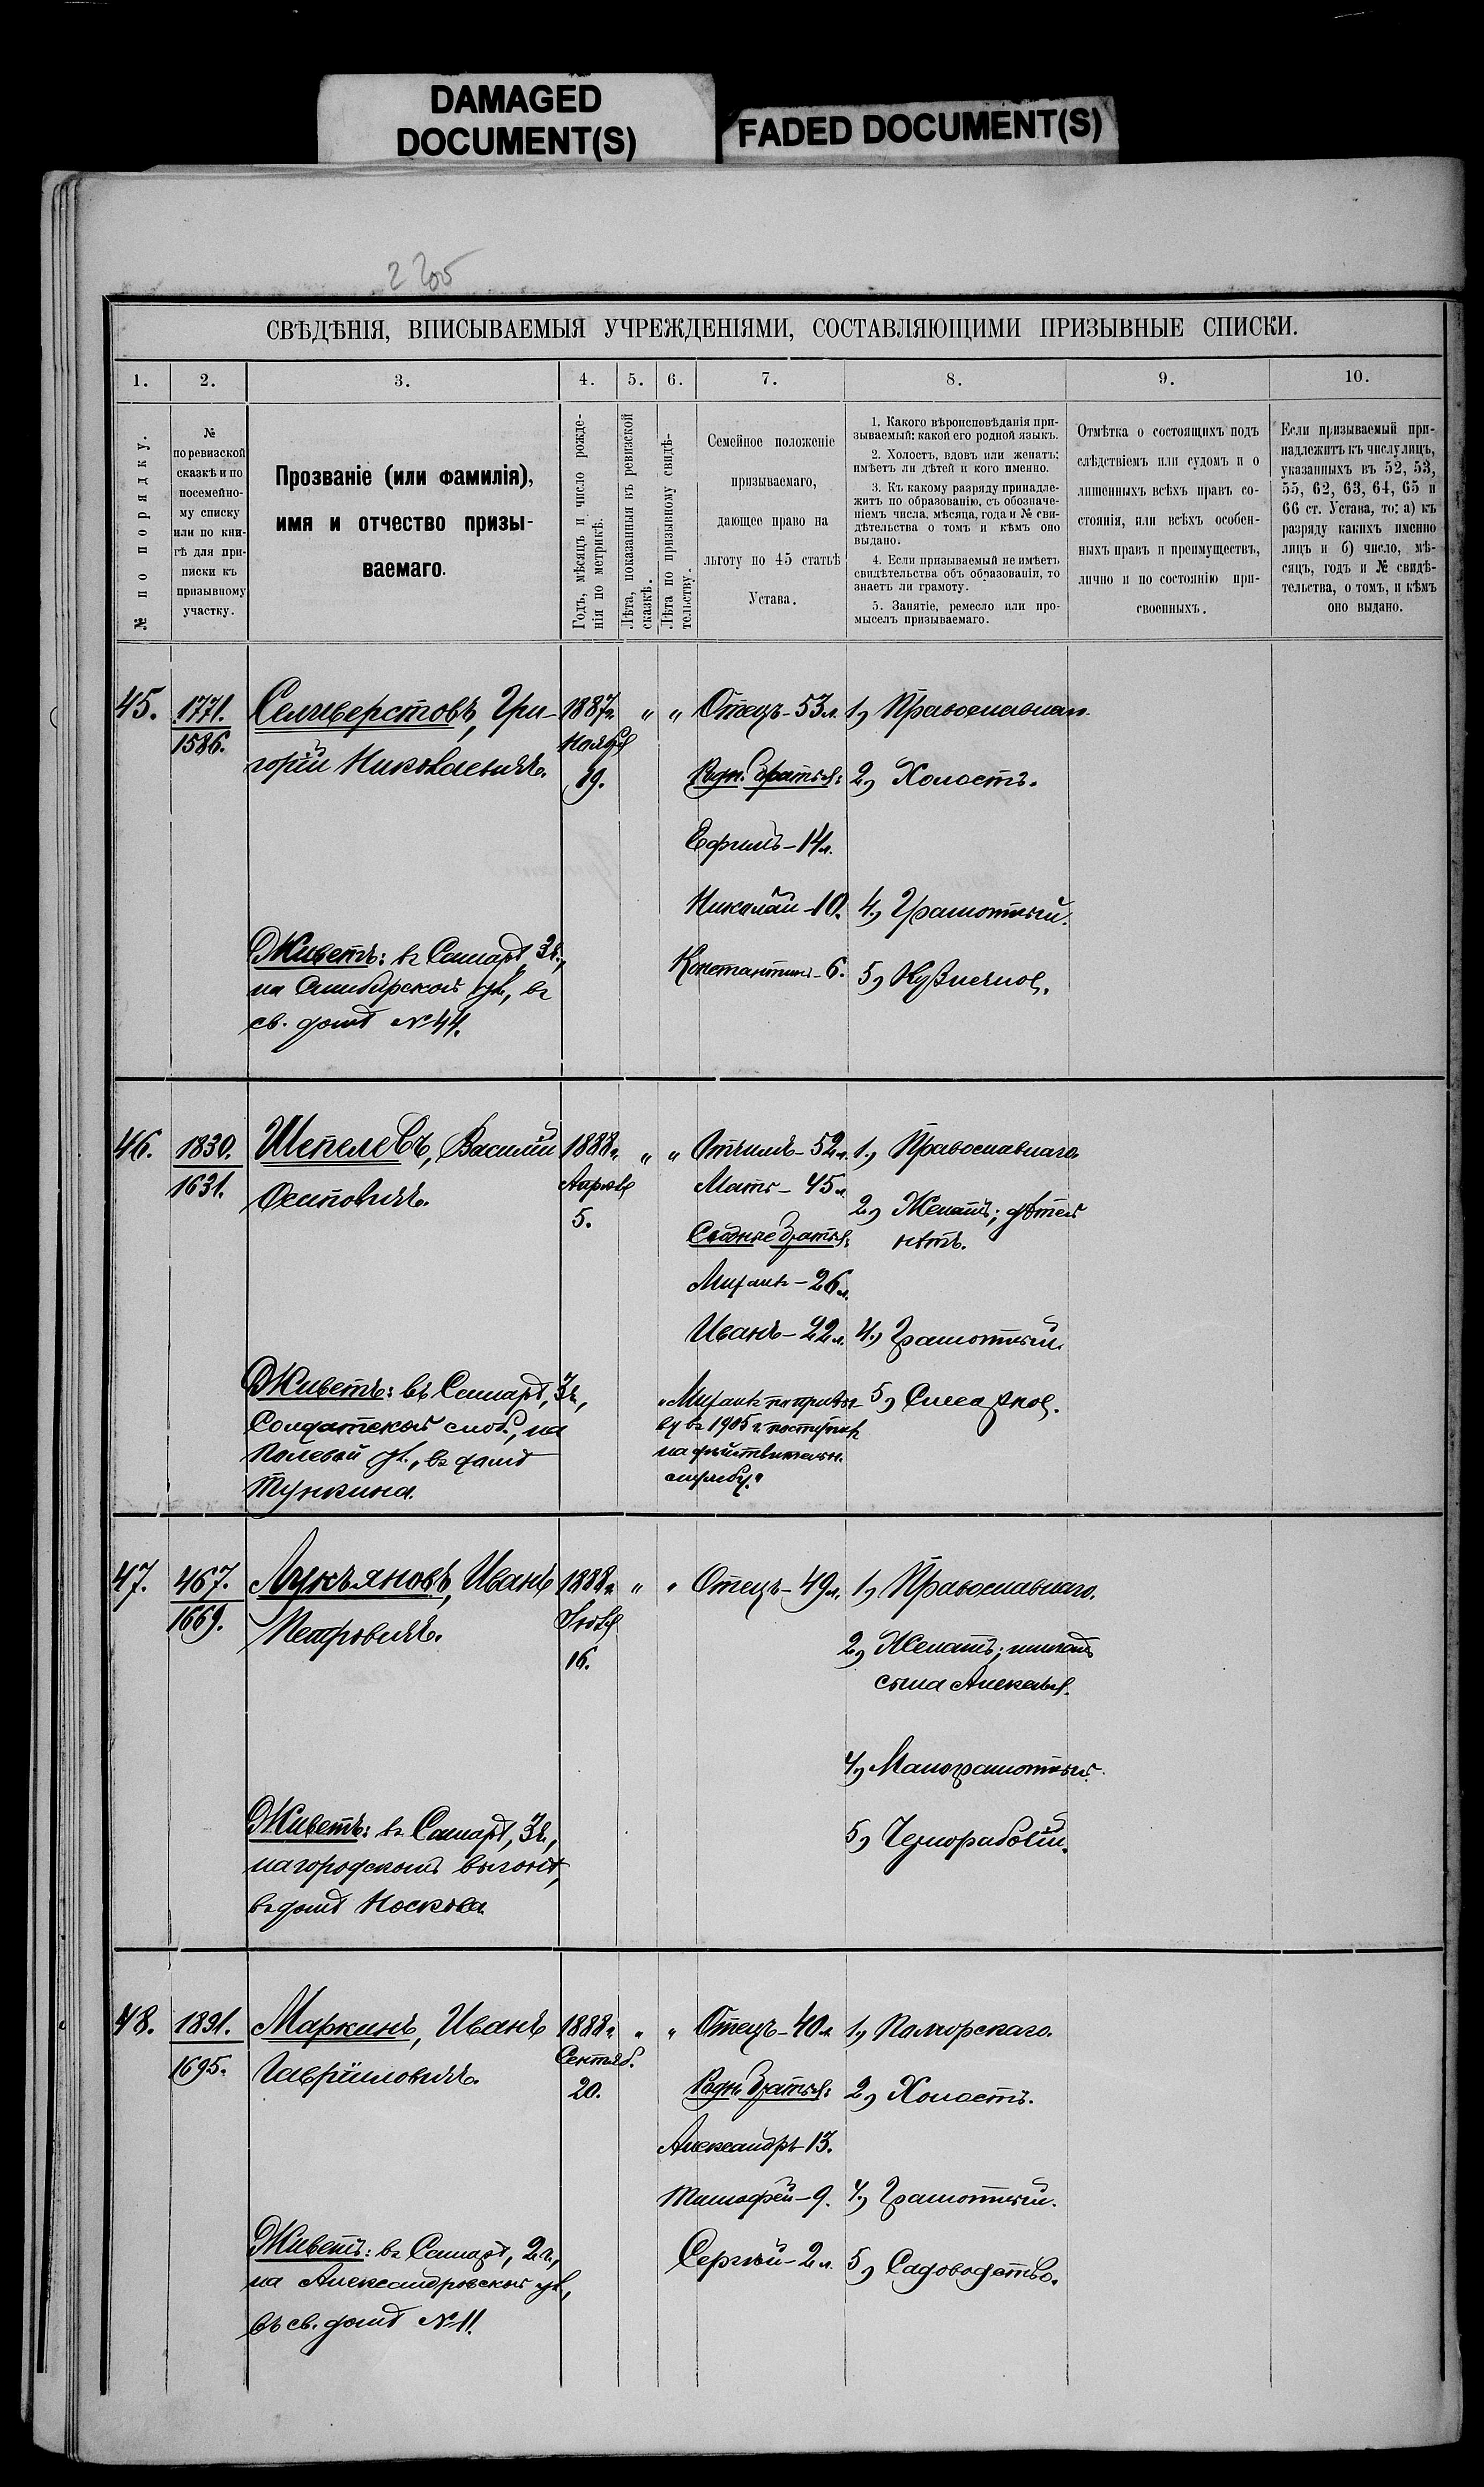 DAMAGED
DOCUMENT(S)
FADED DOCUMENT(S)
СВѢДѢНІЯ, ВПИСЫВАЕМЫЯ УЧРЕЖДЕНІЯМИ, СОСТАВЛЯЮЩИМИ ПРИЗЫВНЫЕ СПИСКИ.
1.
2.
3.
4.
5.
6.
7.
8.
9.
10.
№ по порядку.
№
по ревизской
сказкѣ и по
посемейно-
му списку
или по кни-
гѣ для при-
писки къ
призывному
участку.
Прозваніе (или фамилія),
имя и отчество призы-
ваемаго.
Годъ, мѣсяцъ и число рожде-
нія по метрикѣ.
Лѣта, показанныя въ ревизской
сказкѣ.
Лѣта по призывному свидѣ-
тельству.
Семейное положеніе
призываемаго,
дающее право на
льготу по 45 статьѣ
Устава.
1. Какого вѣроисповѣданія при-
зываемый: какой его родной языкъ.
2. Холостъ, вдовъ или женатъ;
имѣетъ ли дѣтей и кого именно.
3. Къ какому разряду принадле-
житъ по образованію, съ обозначе-
ніемъ числа, мѣсяца, года и № сви-
дѣтельства о томъ и кѣмъ оно
выдано.
4. Если призываемый не имѣетъ
свидѣтельства объ образованіи, то
знаетъ ли грамоту.
5. Занятіе, ремесло или про-
мыселъ призываемаго.
Отмѣтка о состоящихъ подъ
слѣдствіемъ или судомъ и о
лишенныхъ всѣхъ правъ со-
стоянія, или всѣхъ особен-
ныхъ правъ и преимуществъ,
лично и по состоянію при-
своенныхъ.
Если призываемый при-
надлежитъ къ числу лицъ,
указанныхъ въ 52, 53,
55, 62, 63, 64, 65 и
66 ст. Устава, то: а) къ
разряду какихъ именно
лицъ и б) число, мѣ-
сяцъ, годъ и № свидѣ-
тельства, о томъ, и кѣмъ
оно выдано.
45.
1771.
1586.
Селиверстовъ, Гри-
горій Николаевичъ.
Живетъ: въ Самарѣ, 3 ч.,
на Симбирской ул., въ
св. домѣ № 44.
1887 г.
Ноября
19.
" "
Отецъ - 53 л.
Родн. братья:
Ефимъ - 14 л.
Николай - 10.
Константинъ - 6.
1, Православнаго
2, Холостъ.
4, Грамотный.
5, Кузнечное.
46.
1830.
1631.
Шепелевъ, Василій
Осиповичъ.
Живетъ: въ Самарѣ, 3 ч.,
Солдатской слоб., на
Полевой ул., въ домѣ
Тункина.
1888 г.
Апрѣля
5.
" "
Отчимъ - 52 л.
Мать - 45 л.
Сводные братья:
Михаилъ - 26 л.
Иванъ - 22 л.
"Михаилъ по призы-
ву въ 1905 г. поступилъ
на дѣйствительн.
службу."
1, Православнаго
2, Женатъ; дѣтей
нѣтъ.
4, Грамотный.
5,
47.
467.
1669.
Лукъяновъ, Иванъ
Петровичъ.
Живетъ: въ Самарѣ, 3 ч.,
на городскомъ выгонѣ,
въ домѣ Носкова.
1888 г.
Іюля
16.
" "
Отецъ - 49 л.
1, Православнаго.
2, Женатъ; имѣетъ
сына Алексѣя.
4, Малограмотный.
5, Чернорабочій.
48.
1891.
1695.
Маркинъ, Иванъ
Гавріиловичъ.
Живетъ: въ Самарѣ, 2 ч.,
на Александровской ул.,
въ св. домѣ № 11.
1888 г.
Сентяб.
20.
" "
Отецъ - 40 л.
Родн. братья:
Александръ 13.
Тимофей - 9.
Сергѣй - 2 л.
1, Поморскаго.
2, Холостъ.
4, Грамотный.
5, Садоводство.